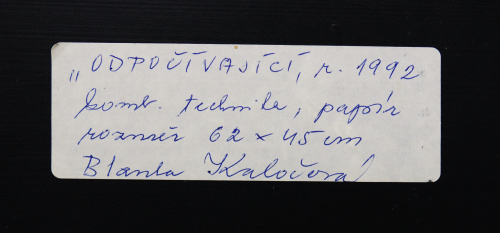 „ODPOČÍVAJÍCÍ, r. 1992
komb. technika, papír
rozměr 62 x 45 cm
Blanka Kaločová